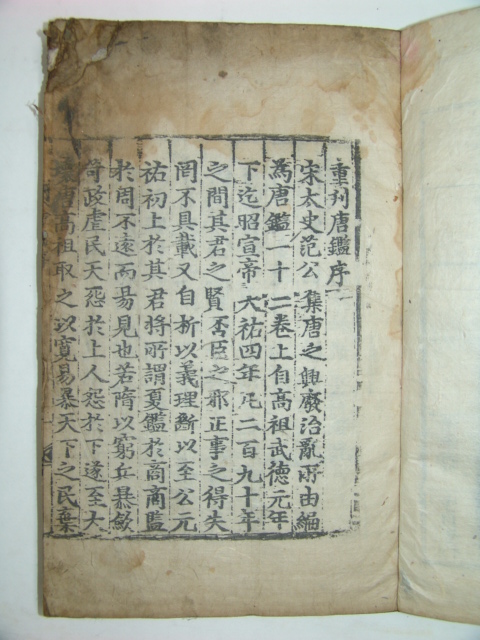 重刋唐鑑序
宋太史范公集唐之興廢治亂所由編
為唐鑑一十二卷上自高祖武德元年
下迄昭宣帝大祐四年凡二百九十年
之間其君之賢否臣之邪正事之得失
罔不具載又自折以義理斷以至公元
祐初上於其君將所謂夏鑑於商商監
於周不遠而易見也若隋以窮兵暴斂
苛政虐民天怨於上人怨於下遂至大
唐高祖取之以寬易暴天下之民棄